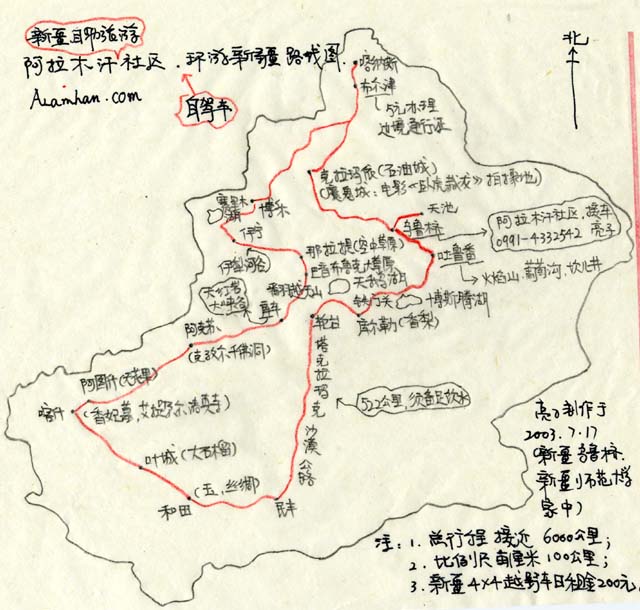 新疆自助旅游
阿拉木汗社区.环游新疆路线图.
Alamhan.com
自驾车
北
喀纳斯
布尔津
5元办理
边境通行证
克拉玛依(石油城)
(魔鬼城:电影《卧虎藏龙》拍摄地)
天池
乌鲁木齐
阿拉木汗社区,接车
0991-4332542 亮子
吐鲁番
火焰山,葡萄沟,坎儿井
赛里木湖
博乐
伊宁
伊犁河谷
那拉提(空中草原)
巴音布鲁克大草原
天鹅湖
翻越天山
库车
铁门关
博斯腾湖
轮台
库尔勒(香梨)
阿克苏
(克孜尔千佛洞)
阿图什(无花果)
喀什
(香妃墓,艾提尕尔清真寺)
塔克拉玛克沙漠公路
522公里,须备足饮水
叶城(大石榴)
和田
(玉,丝绸)
民丰
亮子制作于
2003.7.17
(新疆乌鲁木齐
新疆师范大学
家中)
注:1.总行程接近6000公里;
2.比例尺每厘米100公里;
3.新疆4×4越野车日租金200元